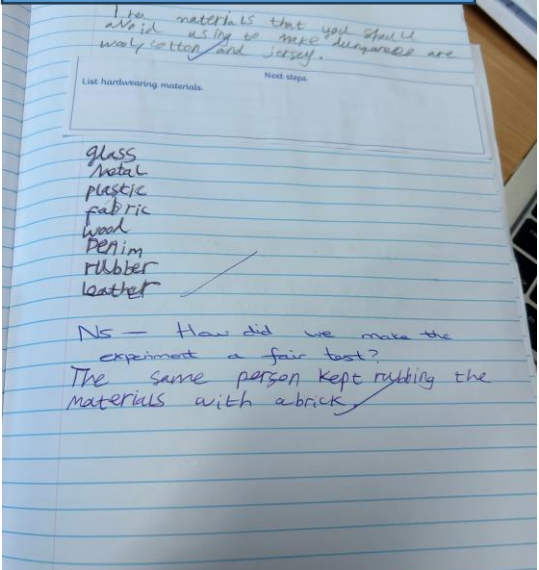 The materials that you should
avoid using to make dungarees are
wool, cotton and jersey.
Next steps.
List hardwearing materials.
glass
Metal
plastic
fabric
wood
Denim
rubber
leather
NS - How did we make the
experiment a fair test?
The same person kept rubbing the
materials with a brick.